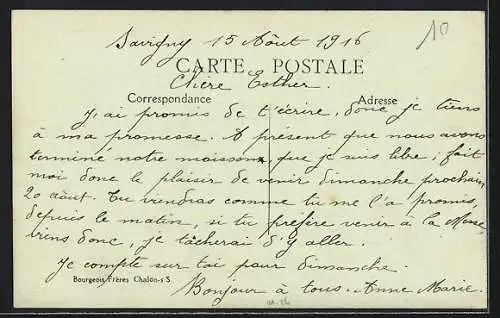 10
Savigny 15 Août 1916
CARTE POSTALE
Chère Esther.
Correspondance
Adresse
J'ai promis de t'écrire, donc je tiens
à ma promesse. A présent que nous avons
terminé notre moisson, que je suis libre; fait
moi donc le plaisir de venir dimanche prochain,
20 août. Tu viendras comme tu me l'a promis,
depuis le matin, si tu préfère venir à la Messe,
viens donc, je tâcherai d'y aller.
Je compte sur toi pour dimanche.
Bourgeois Frères Chalon-s-S.
Bonjour à tous. Anne Marie.